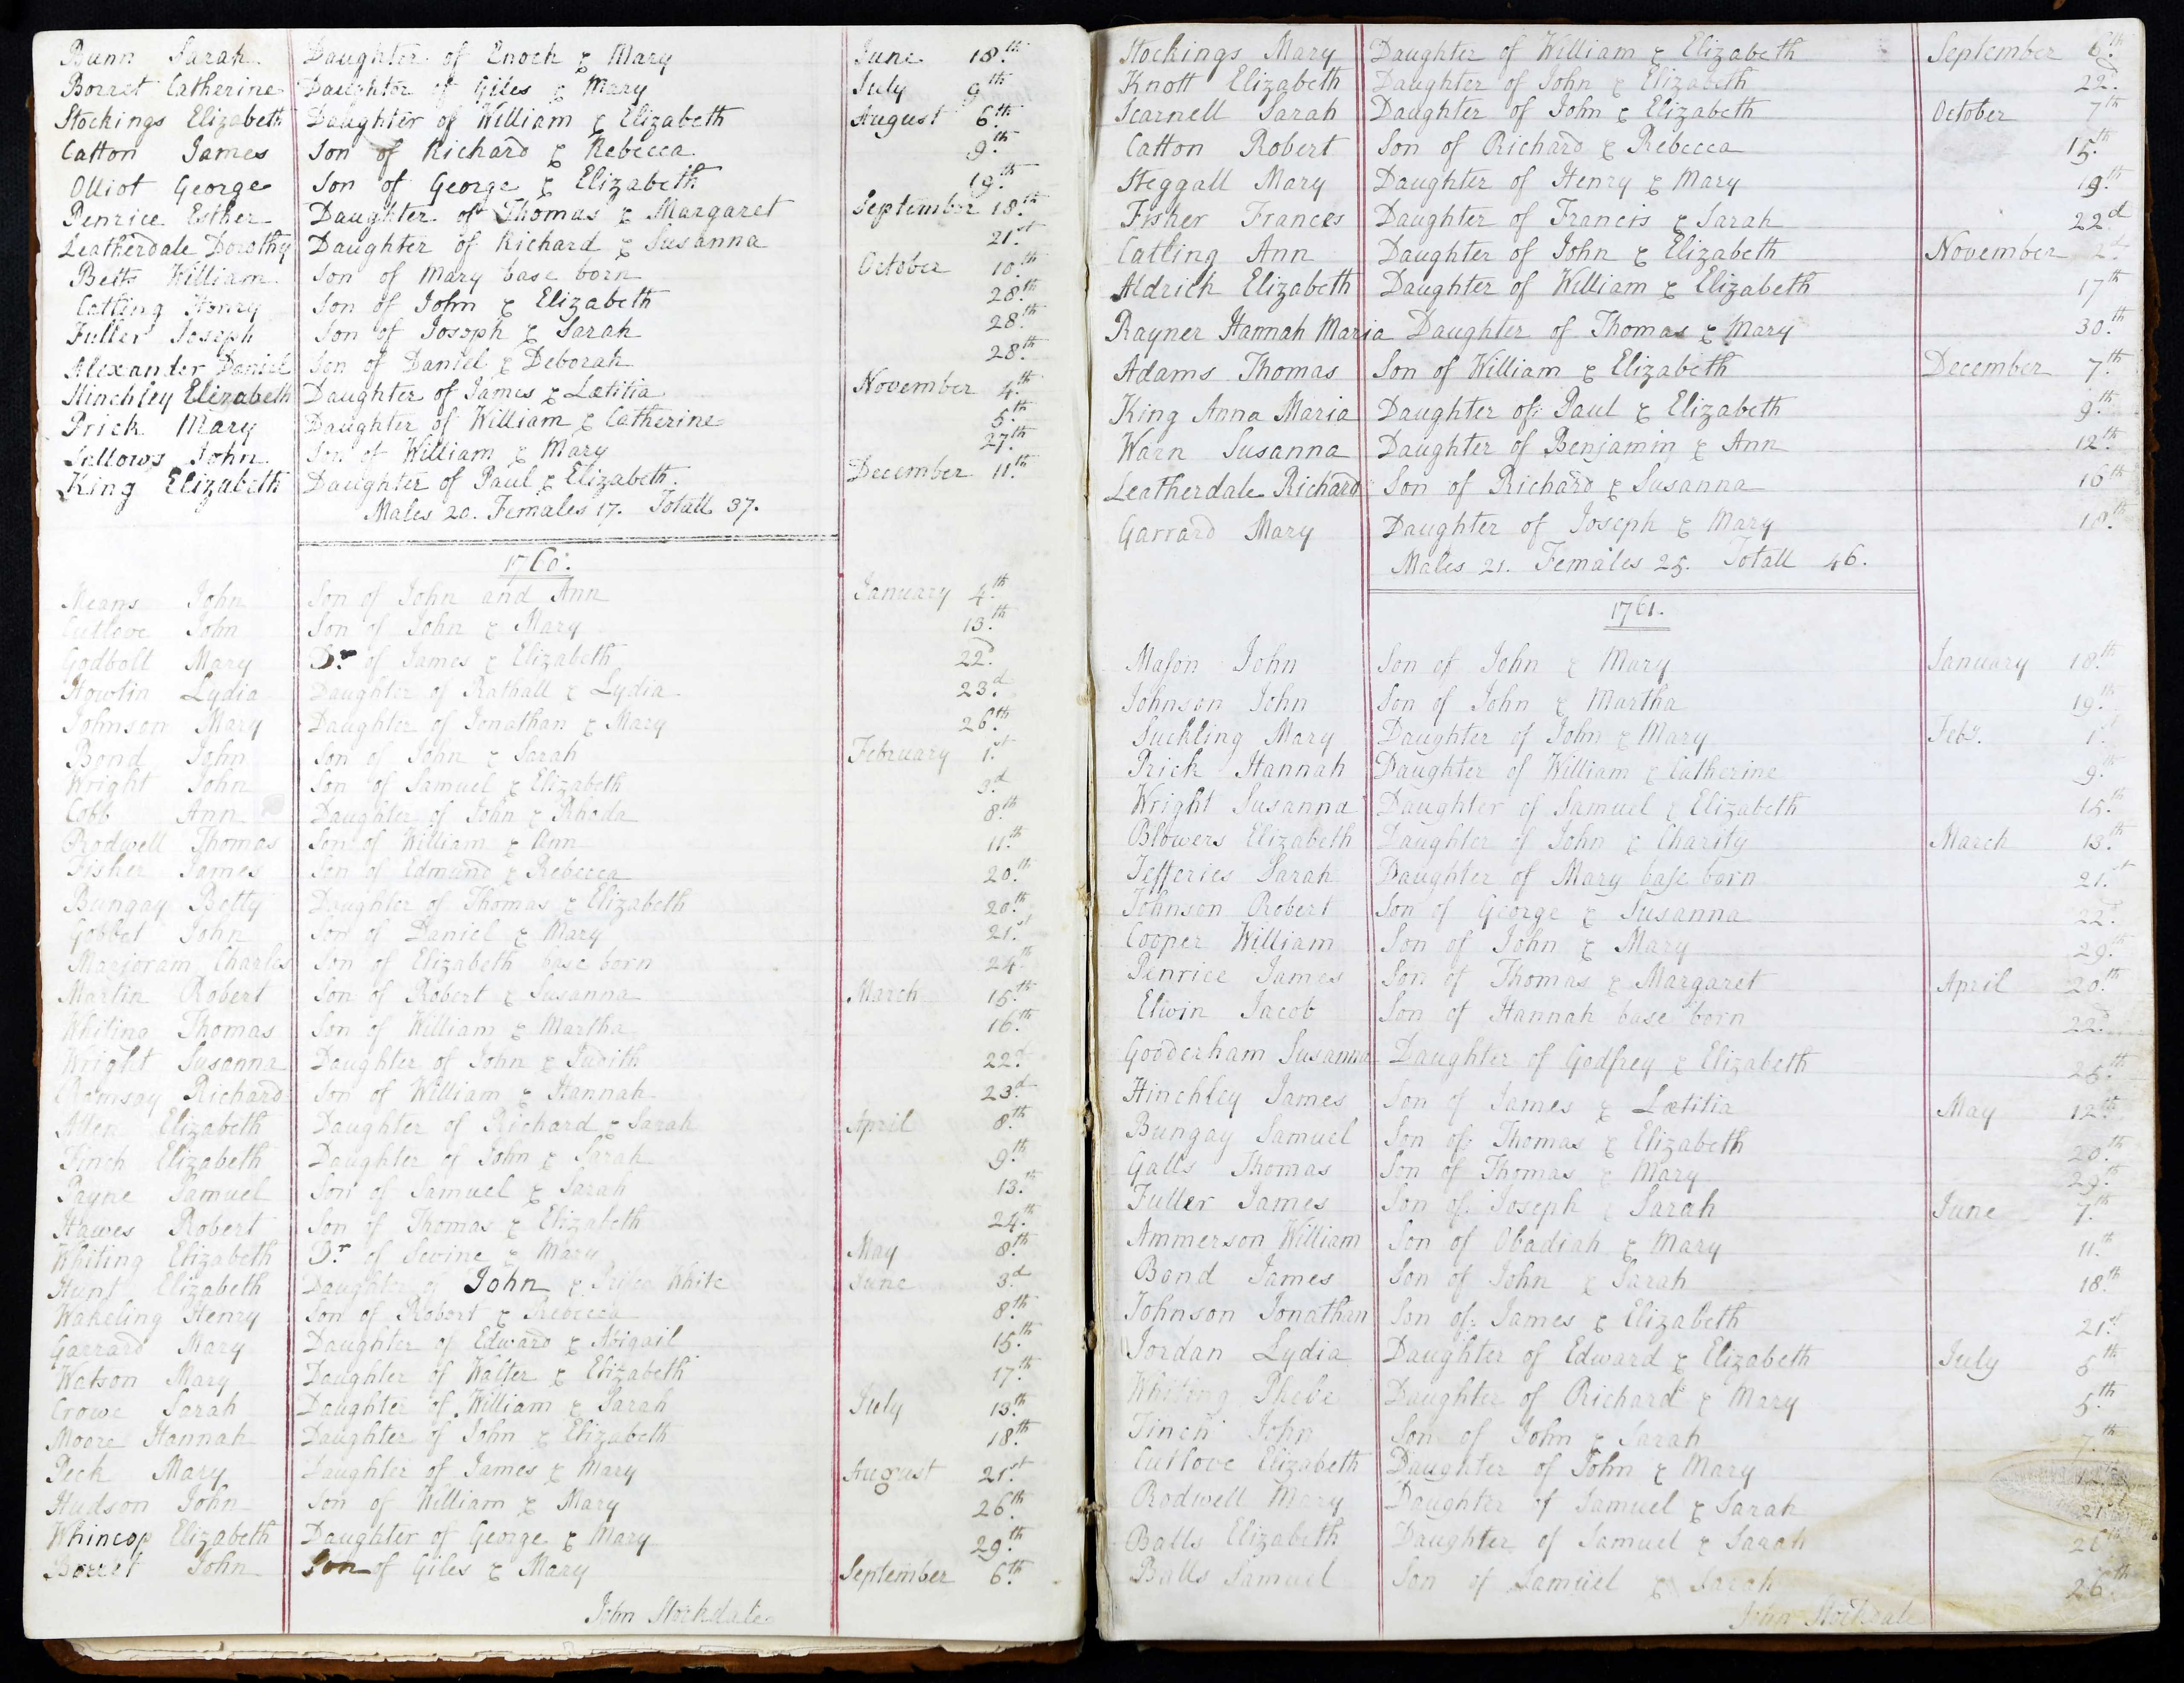 Bunn Sarah Daughter of Enoch & Mary June 18.th
Borret Catherine Daughter of Giles & Mary July 9.th
Stockings Elizabeth Daughter of William & Elizabeth August 6.th
Catton James Son of Richard & Rebecca 9.th
Olliot George Son of George & Elizabeth 19.th
Penrice Esther Daughter of Thomas & Margaret September 18.th
Leatherdale Dorothy Daughter of Richard & Susanna 21.st
Betts William Son of Mary base born October 10.th
Catling Henry Son of John & Elizabeth 28.th
Fuller Joseph Son of Joseph & Sarah 28.th
Alexander Daniel Son of Daniel & Deborah 28.th
Hinchley Elizabeth Daughter of James & Lætitia November 4.th
Prick Mary Daughter of William & Catherine 5.th
Sallows John Son of William & Mary 27.th
King Elizabeth Daughter of Paul & Elizabeth. December 11.th
Males 20. Females 17. Totall 37.
1760.
Means John Son of John and Ann January 4.th
Cutlove John Son of John & Mary 13.th
Godboll Mary D.r of James & Elizabeth 22.d
Howlin Lydia Daughter of Rathall & Lydia 23.d
Johnson Mary Daughter of Jonathan & Mary 26.th
Bond John Son of John & Sarah February 1.st
Wright John Son of Samuel & Elizabeth 3.d
Cobb Ann Daughter of John & Rhoda 8.th
Rodwell Thomas Son of William & Ann 11.th
Fisher James Son of Edmund & Rebecca 20.th
Bungay Betty Daughter of Thomas & Elizabeth 20.th
Gobbet John Son of Daniel & Mary 21.st
Marjoram Charles Son of Elizabeth base born 24.th
Martin Robert Son of Robert & Susanna March 15.th
Whiting Thomas Son of William & Martha 16.th
Wright Susanna Daughter of John & Judith 22.d
Ramsay Richard Son of William & Hannah 23.d
Allen Elizabeth Daughter of Richard & Sarah April 8.th
Finch Elizabeth Daughter of John & Sarah 9.th
Payne Samuel Son of Samuel & Sarah 13.th
Hawes Robert Son of Thomas & Elizabeth 24.th
Whiting Elizabeth D.r of & Mary May 8.th
Hunt Elizabeth Daughter of John & White June 3.d
Wakeling Henry Son of Robert & Rebecca 8.th
Garrard Mary Daughter of Edward & Abigail 15.th
Watson Mary Daughter of Walter & Elizabeth 17.th
Crowe Sarah Daughter of William & Sarah July 13.th
Moore Hannah Daughter of John & Elizabeth 18.th
Peck Mary Daughter of James & Mary August 21.st
Hudson John Son of William & Mary 26.th
Whincop Elizabeth Daughter of George & Mary 29.th
Borret John Son of Giles & Mary September 6.th
John Stockdale
Stockings Mary Daughter of William & Elizabeth September 6th
Knott Elizabeth Daughter of John & Elizabeth 22.d
Scarnell Sarah Daughter of John & Elizabeth October 7th
Catton Robert Son of Richard & Rebecca 15.th
Steggall Mary Daughter of Henry & Mary 19.th
Fisher Frances Daughter of Francis & Sarah 22d
Catling Ann Daughter of John & Elizabeth November 2.d
Aldrich Elizabeth Daughter of William & Elizabeth 17th
Rayner Hannah Maria Daughter of Thomas & Mary 30.th
Adams Thomas Son of William & Elizabeth December 7.th
King Anna Maria Daughter of Paul & Elizabeth 9.th
Warn Susanna Daughter of Benjamin & Ann 12.th
Leatherdale Richard Son of Richard & Susanna 16th
Garrard Mary Daughter of Joseph & Mary 18.th
Males 21. Females 25. Totall 46.
1761.
Mason John Son of John & Mary January 18.th
Johnson John Son of John & Martha 19.th
Suckling Mary Daughter of John & Mary Feby. 1.
Prick Hannah Daughter of William & Catherine 9.th
Wright Susanna Daughter of Samuel & Elizabeth 15.th
Blowers Elizabeth Daughter of John & Charity March 13.th
Jefferies Sarah Daughter of Mary base born 21.st
Johnson Robert Son of George & Susanna 22.d
Cooper William Son of John & Mary 29.th
Penrice James Son of Thomas & Margaret April 20.th
Elwin Jacob Son of Hannah base born 22.d
Gooderham Susanna Daughter of Godfrey & Elizabeth 25.th
Hinchley James Son of James & Lætitia May 12.th
Bungay Samuel Son of Thomas & Elizabeth 20.th
Galls Thomas Son of Thomas & Mary 29.th
Fuller James Son of Joseph & Sarah June 7.th
Ammerson William Son of Obadiah & Mary 11.th
Bond James Son of John & Sarah 18.th
Johnson Jonathan Son of James & Elizabeth 21.st
Jordan Lydia Daughter of Edward & Elizabeth July 5th
Whiting Phebe Daughter of Richard & Mary 5.th
Finch John Son of John & Sarah 7.th
Cutlove Elizabeth Daughter of John & Mary
Rodwell Mary Daughter of Samuel & Sarah 21
Balls Elizabeth Daughter of Samuel & Sarah 26th
Balls Samuel Son of Samuel & Sarah 26.th
John Stockdale